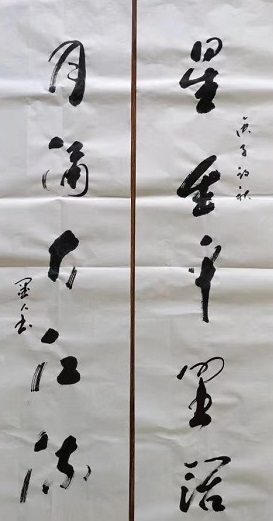 星垂平野阔
庚子初秋
月涌大江流
墨人书